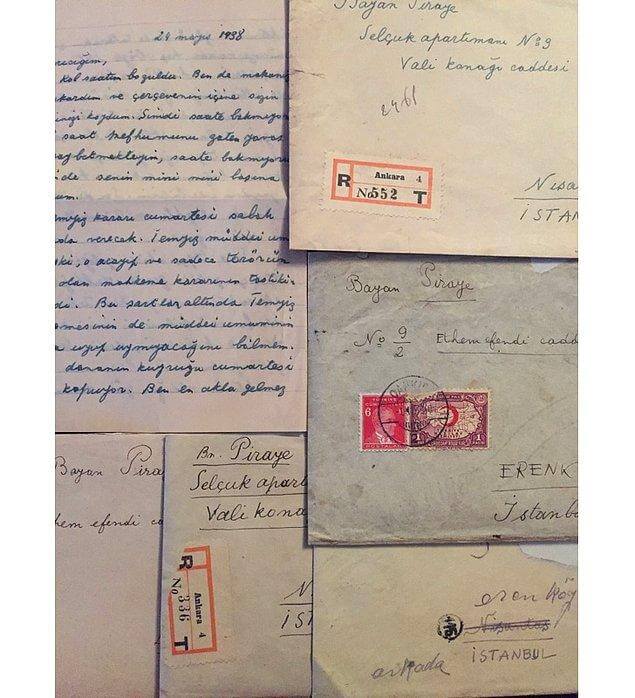 29 mayıs 1938
rıcığım,
kol saatim bozuldu. Ben de
kardım ve çerçevenin içine sizin
koydum. Şimdi saate bakmıyor
saat mefhumunu zaten yavaş
betmekteyim, saate bakmıyor
de senin mini mini başına
um.
temyiz kararı cumartesi sabah
da verecek. Temyiz müddei um
ki, o acayip ve sadece terörün
olan mahkeme kararının tastiki
di. Bu şartlar altında Temyiz
mesinin de müddei umuminin
a uyup uymıyacağını bilmem.
dananın kuyruğu cumartesi
kopuyor. Ben en akla gelmez
Bayan Piraye
Selçuk apartımanı No 9
Vali konağı caddesi
2461
R Ankara 4
No 552 T
Nişa
İSTAN
Bayan Piraye
No 9/2 Ethem efendi cadd
6
20
1
ERENK
İstanb
Bayan Pira
hem efendi ca
Bn. Piraye
Selçuk apart
Vali kona
R Ankara 4
No 336 T
N
İST
eren köy
Nişantaş
İSTANBUL
arkada